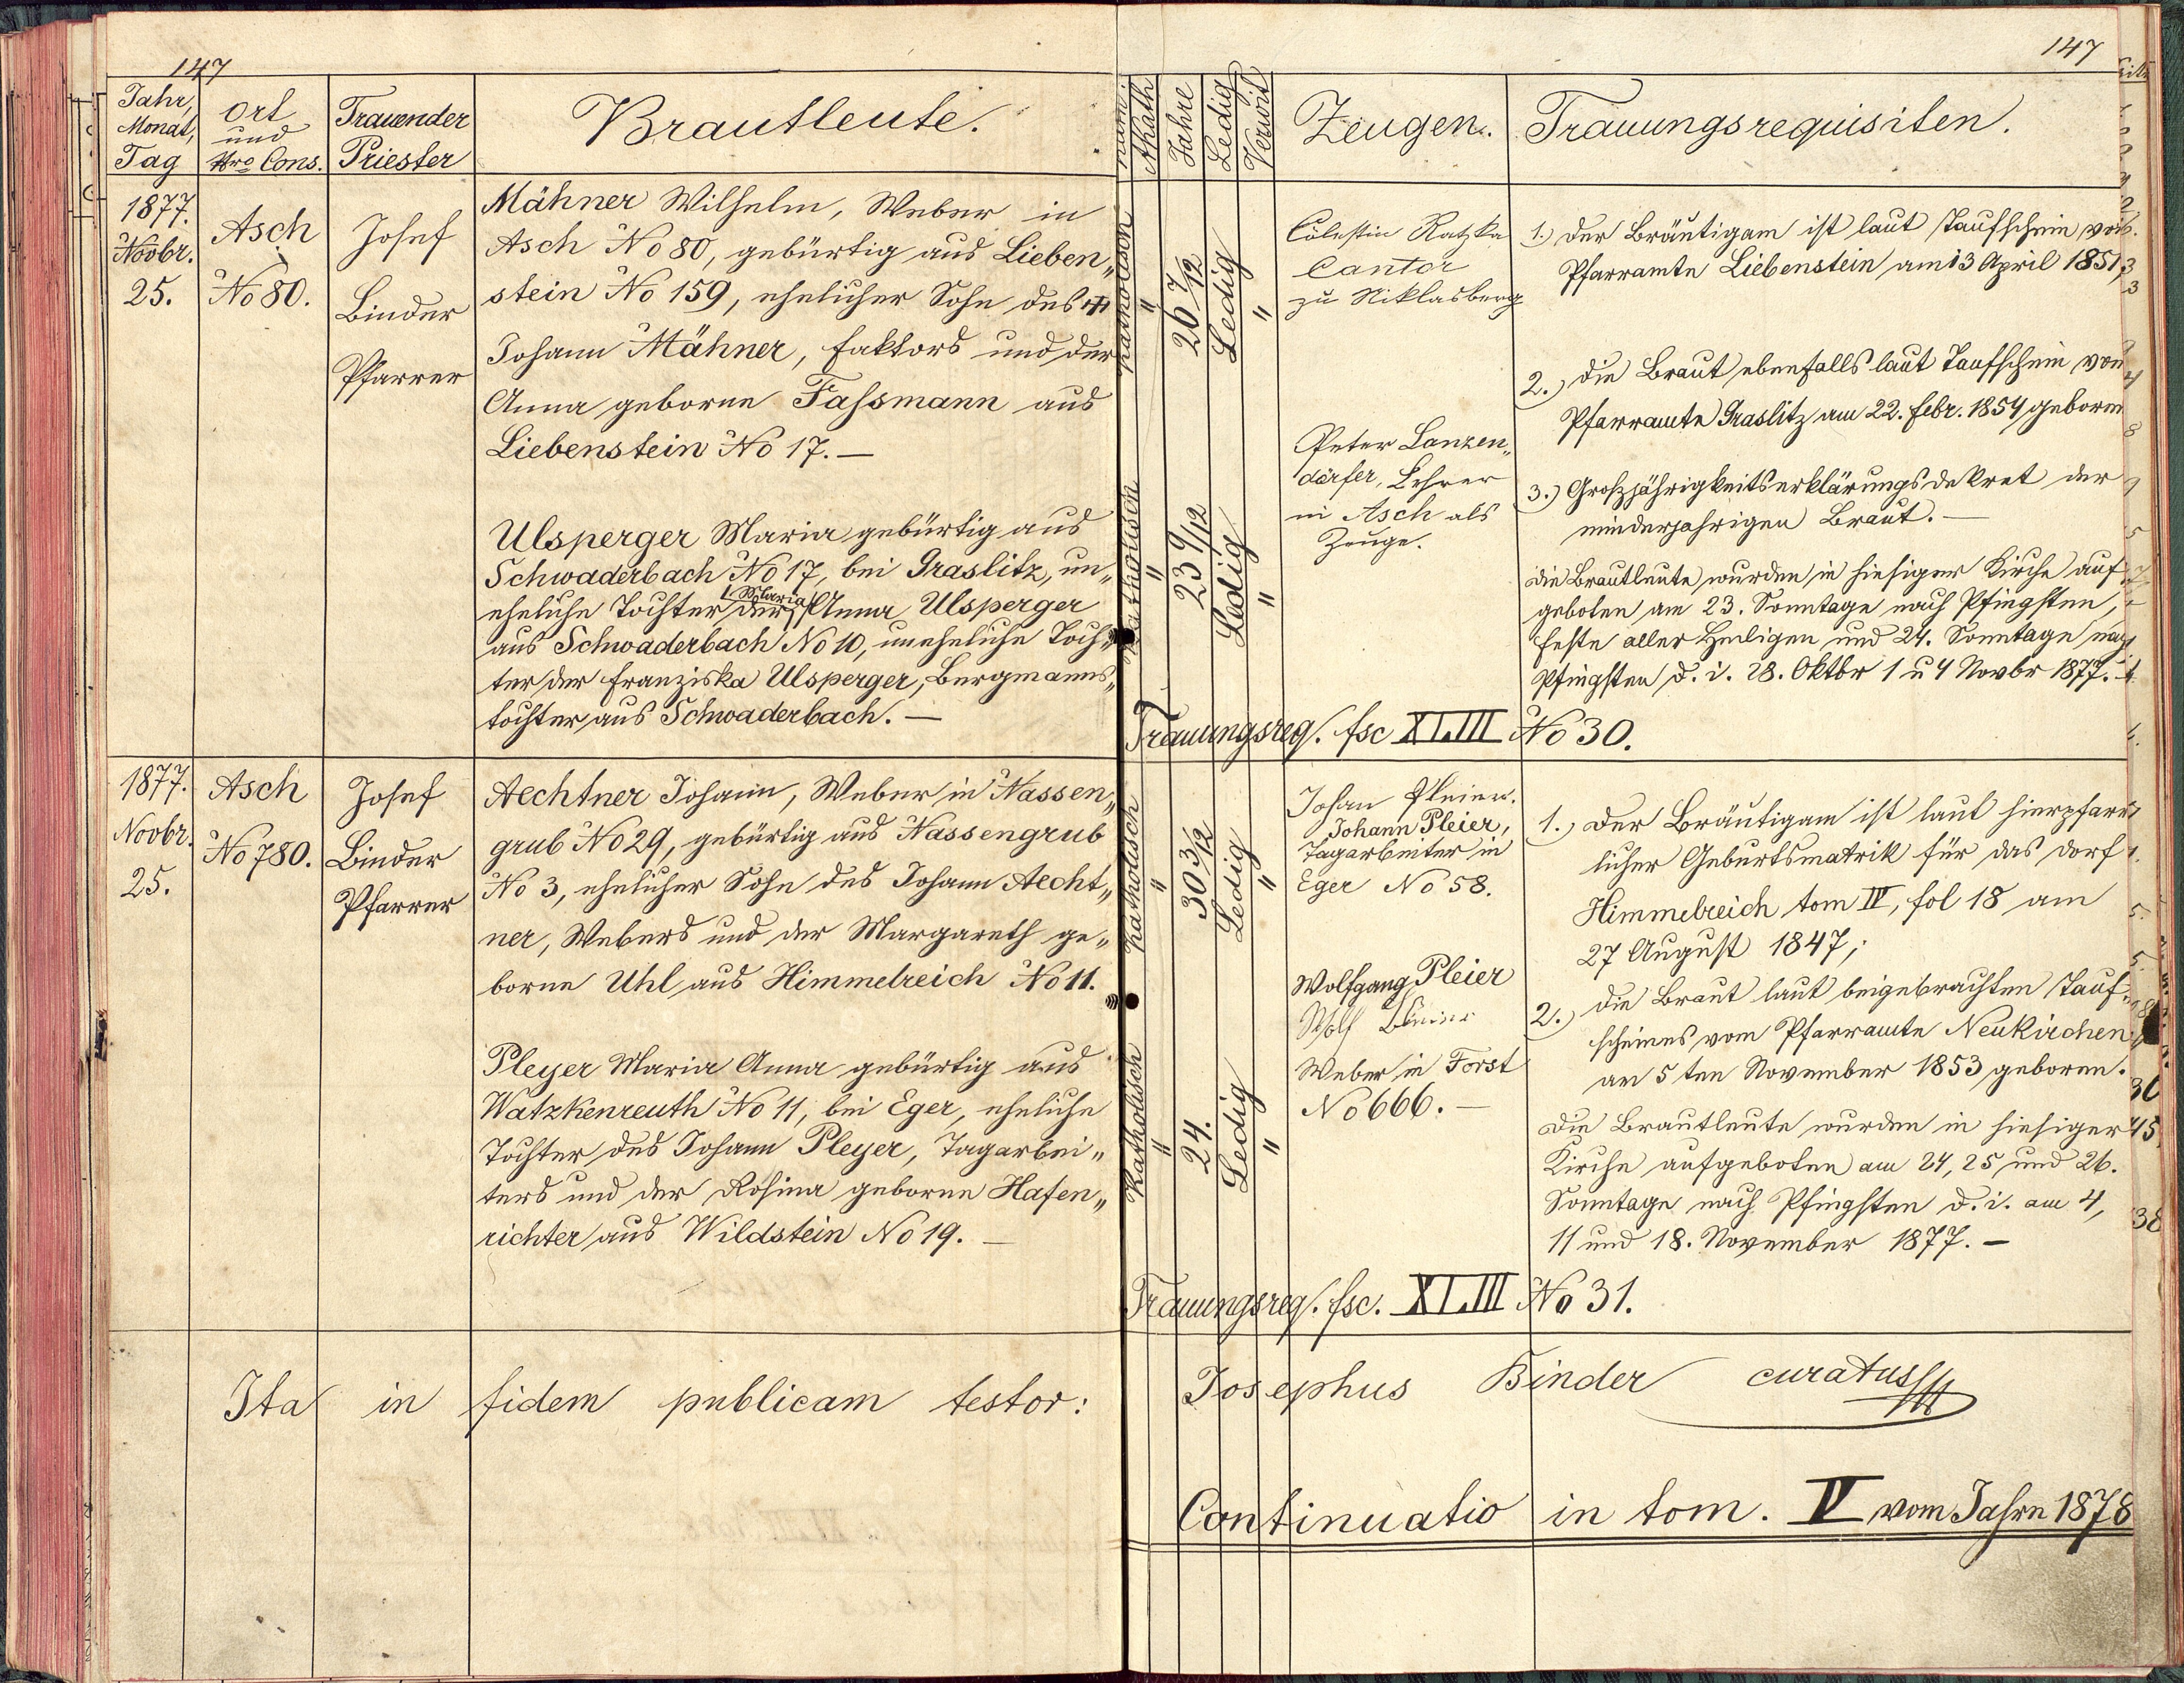 147
Jahr,
Monat,
Tag
Ort
und
Nro Cons.
Trauender
Priester
Brautleute.
1877.
Novbr.
25.
Asch
No 80.
Josef
Binder
Pfarrer
Mähner Wilhelm, Weber in
Asch No 80, gebürtig aus Lieben„
stein No 159, ehelicher Sohn des
Johann Mähner, Faktors und der
Anna geborne Fassmann aus
Liebenstein No 17. —
Ulsperger Maria gebürtig aus
Schwaderbach No 17, bei Graslitz, un„
eheliche Tochter der Maria Anna Ulsperger
aus Schwaderbach No 10, uneheliche Toch„
ter der Franziska Ulsperger, Bergmanns„
tochter aus Schwaderbach. —
1877.
Novbr.
25.
Asch
No 780.
Josef
Binder
Pfarrer
Aechtner Johann, Weber in Nassen„
grub No 29, gebürtig aus Nassengrub
No 3, ehelicher Sohn des Johann Aecht„
ner, Webers und der Margareth ge„
borne Uhl aus Himmelreich No 11.
Pleyer Maria Anna gebürtig aus
Watzkenreuth No 11, bei Eger, eheliche
Tochter des Johann Pleyer, Tagarbei„
ters und der Rosina geborne Hafen„
richter aus Wildstein No 19. —
Ita in fidem publicam testor:
147
Akath
Jahre
Ledig
Verwit
Zeugen.
Trauungsrequisiten.
Katholisch
"
26 7/12
Ledig
"
Cölestin Ratzka
Cantor
zu Niklasberg
1.) Der Bräutigam ist laut Taufschein vom
Pfarramte Liebenstein am 13 April 1851,
2.) die Braut ebenfalls laut Taufschein von
Pfarramte Graslitz am 22. Febr. 1854 geboren
Katholisch
"
23 9/12
Ledig
"
Peter Lanzen„
dörfer, Lehrer
in Asch als
Zeuge.
3.) Großjährigkeitserklärungsdekret der
minderjahrigen Braut. —
Die Brautleute wurden in hiesiger Kirche auf„
geboten am 23. Sonntage nach Pfingsten,
Feste aller Heiligen und 24. Sonntage nach
Pfingsten d. i. 28. Oktbr 1 u 4 Novbr 1877.
Trauungsreq. fsc XLIII No 30.
Katholisch
"
30 3/12
Ledig
"
Johan Pleier.
Johann Pleier,
Tagarbeiter in
Eger No 58.
1.) Der Bräutigam ist laut hierpfarr
licher Geburtsmatrik für das Dorf
Himmelreich tom IV, fol 18 am
27 August 1847;
Katholisch
"
24.
Ledig
"
Wolfgang Pleier
Wolf
Weber in Forst
No 666. —
2.) die Braut laut beigebrachten Tauf„
scheines vom Pfarramte Neukirchen
am 5 ten November 1853 geboren.
Die Brautleute wurden in hiesiger
Kirche aufgeboten am 24, 25 und 26.
Sonntage nach Pfingsten d. i. am 4,
11 und 18. November 1877. —
Trauungsreq. fsc. XLIII No 31.
Josephus Binder curatus
Continuatio in tom. V vom Jahre 1878